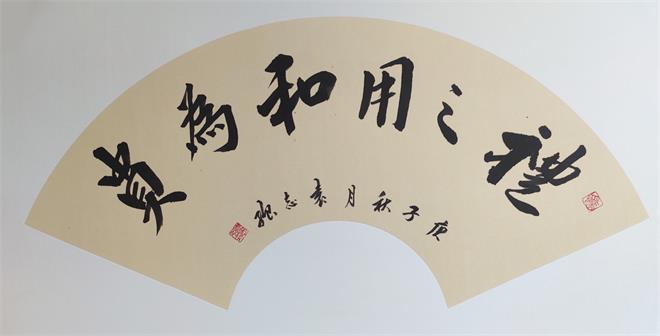 禮之用和為貴
庚子秋月袁志